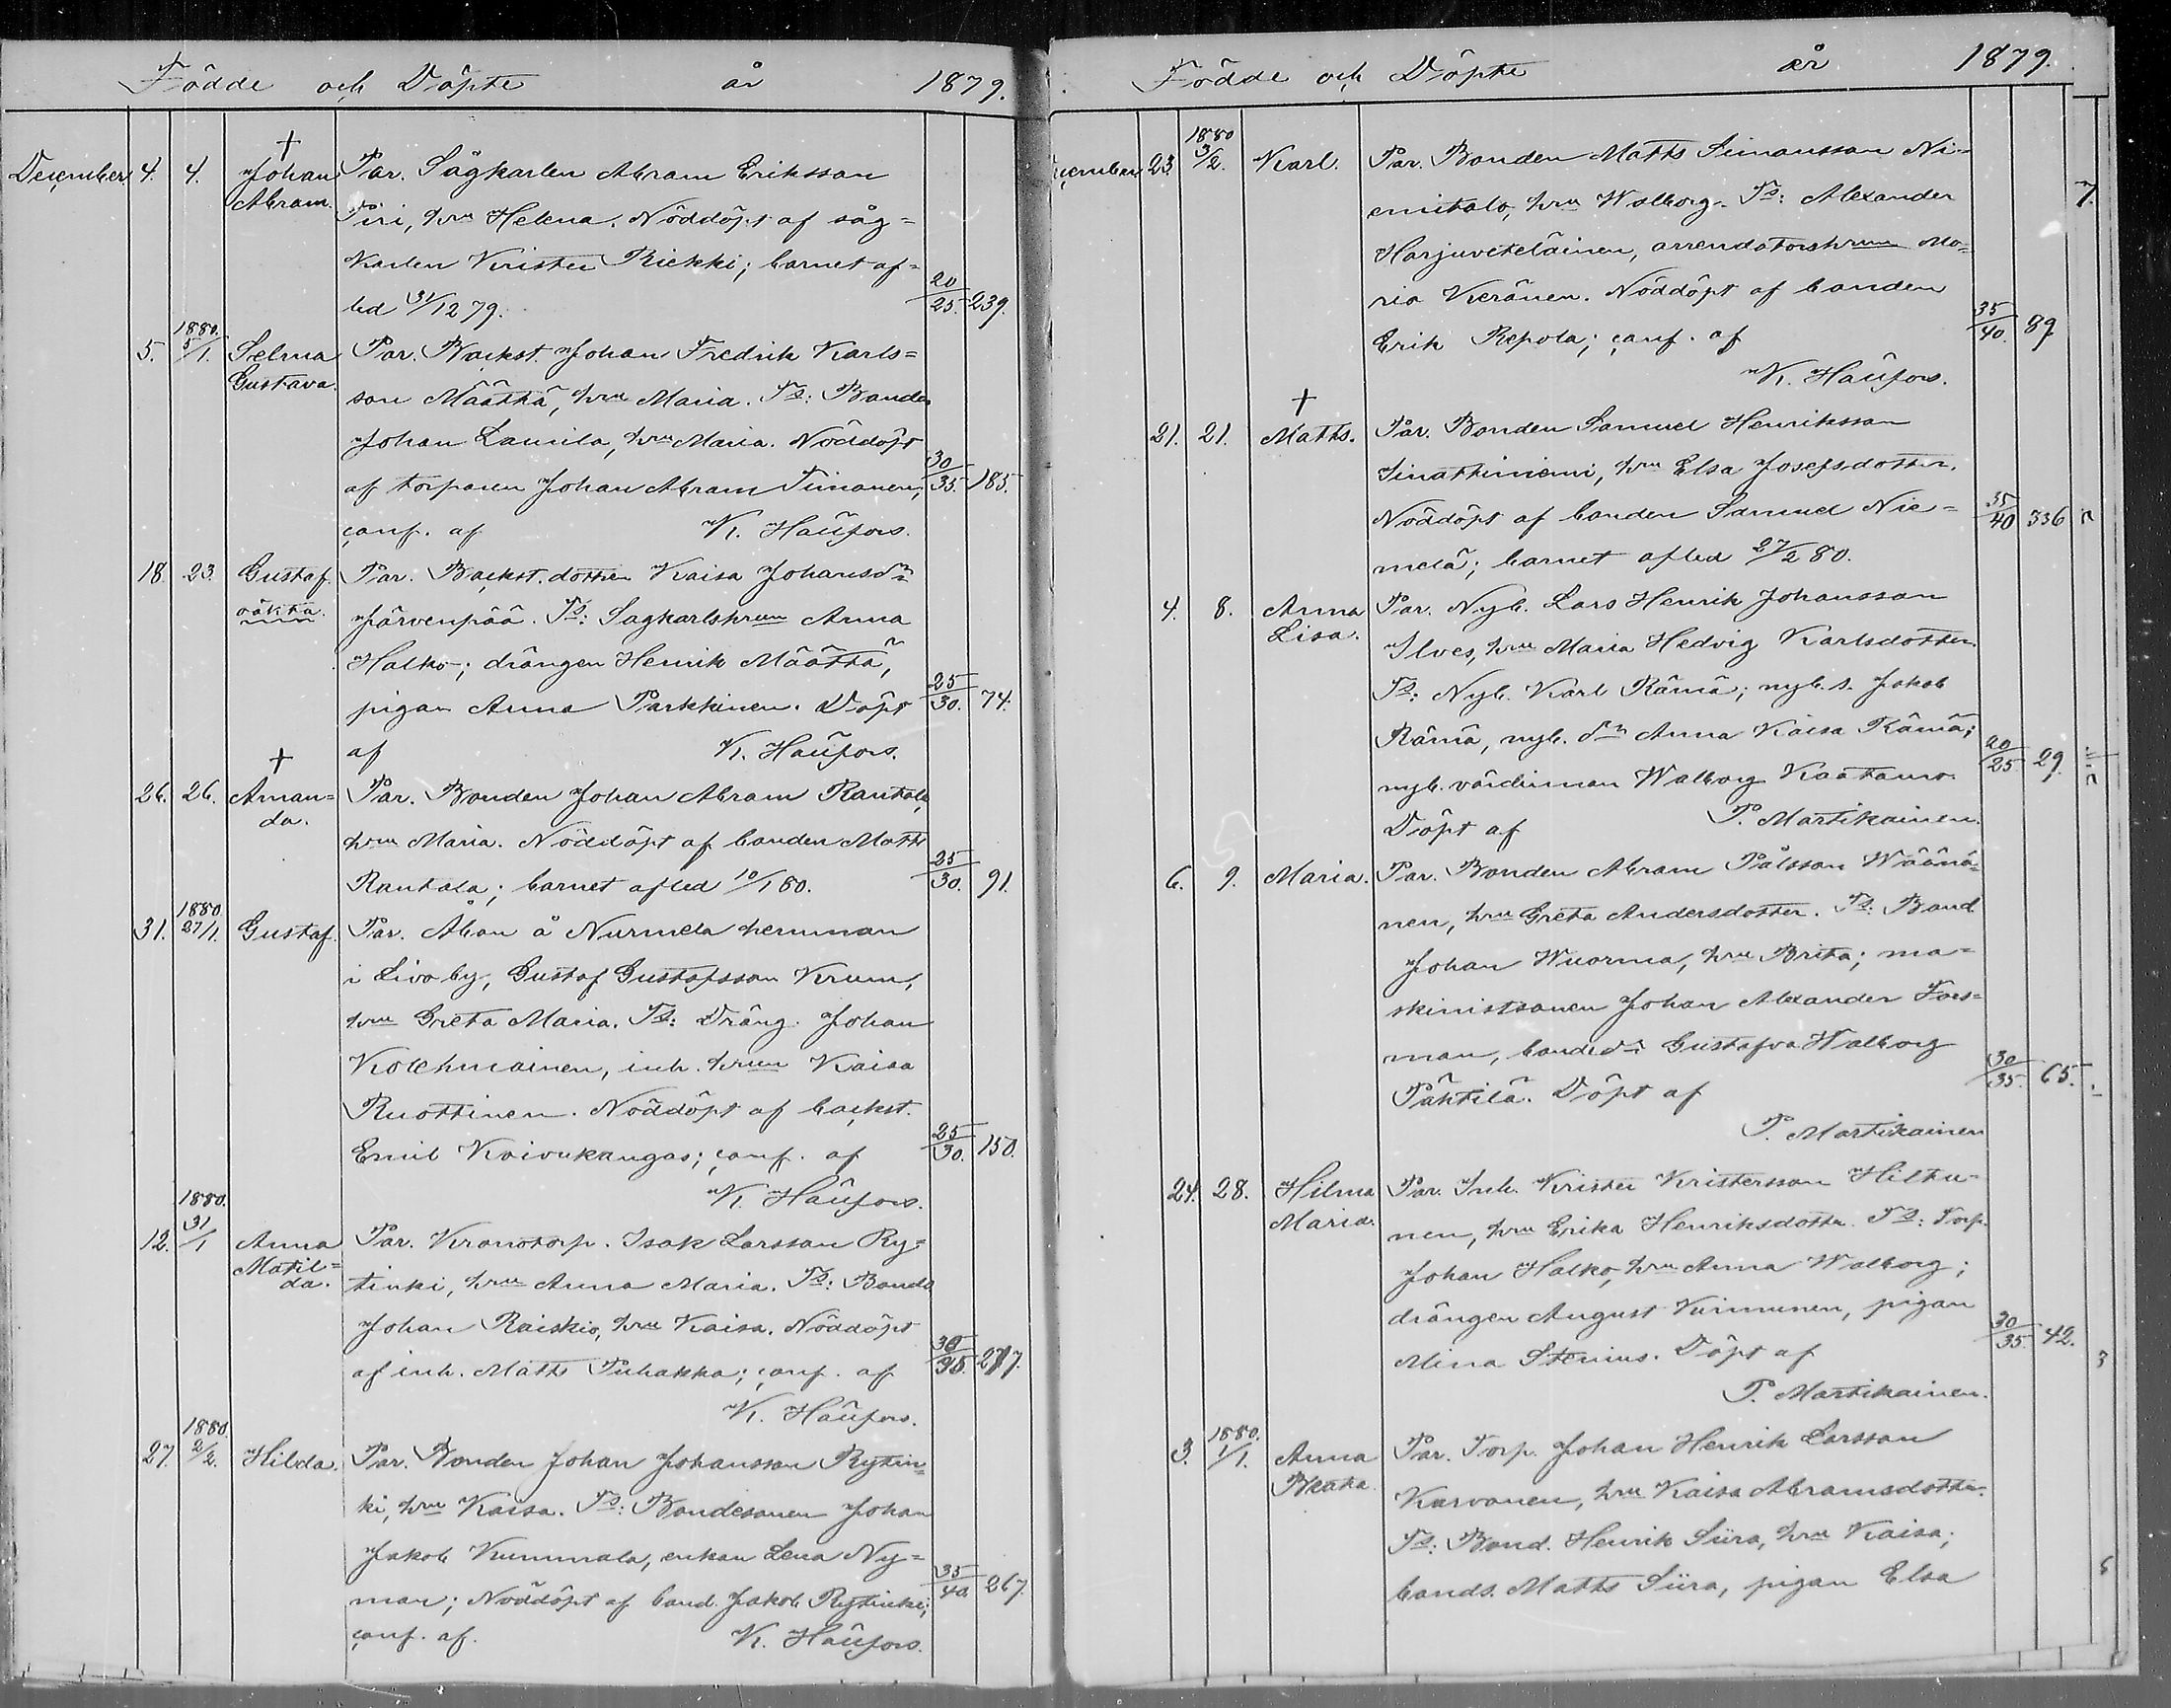 Födde och Döpte år 1879.
December 4. 4. † Johan Par. Sågkarlen Abram Eriksson
Abram. Piri, hru Helena. Nöddöpt af såg=
karlen Krister Riekki; barnet af=
led 31/12 79. 20/25. 239.
1880.
5. 5/1. Selma Par. Backst. Johan Fredrik Karls=
Gustava. son Määttä, hru Maria. Ts: Bonden
Johan Laurila, hru Maria. Nöddöpt
af torparen Johan Abram Timonen, 30/35. 185.
conf. af K. Haüfors.
18. 23. Gustaf. Par. Backst. dottren Kaisa Johansdr
oäkta. Järvenpää. Ts: Sagkarlshrun Anna
Halko; drängen Henrik Määttä,
pigan Anna Parkkinen. Döpt 25/30. 74.
af K. Haüfors.
†
26. 26. Aman= Par. Bonden Johan Abram Rantala,
da. hru Maria. Nöddöpt af bonden Matts
Rantala; barnet afled 10/1 80. 25/30. 91.
1880.
31. 27/1. Gustaf. Par. Åbon å Nurmela hemman
i Livo by, Gustaf Gustafsson Krum,
hru Greta Maria. Ts: Dräng. Johan
Kolehmainen, inh. hrun Kaisa
Ruottinen. Nöddöpt af backst.
Emil Koivukangas; conf. af 25/30. 150.
K. Haüfors.
1880.
12. 31/1 Anna Par. Kronotorp. Isak Larsson Ry=
Matil= tinki, hru Anna Maria. Ts: Bond
da.
Johan Raiskio, hru Kaisa. Nöddöpt
af inh. Matts Puhakka; conf. af 30/35. 277.
K. Haüfors.
1880.
27. 2/2. Hilda. Par. Bonden Johan Johansson Rytin=
ki, hru Kaisa. Ts: Bondesonen Johan
Jakob Kummala, enkan Lena Ny=
man; Nöddöpt af bond. Jakob Rytinki; 35/40. 267.
conf. af. K. Haüfors.
Födde och Döpte år 1879.
1880
cember 23. 3/2. Karl. Par. Bonden Matts Simonsson Ni=
emitalo, hru Walborg. Ts: Alexander
Harjuviteläinen, arrendatorshrun Ma=
ria Keränen. Nöddöpt af bonden
Erik Repola; conf. af 35/40. 89
K. Haüfors.
†
21. 21. Matts. Par. Bonden Samuel Henriksson
Sinattiniemi, hru Elsa Josefsdotter.
Nöddöpt af bonden Samuel Nie= 35/40 336
melä; barnet afled 27/2 80.
4. 8. Anna Par. Nyb. Lars Henrik Johansson
Lisa. Ilves, hru Maria Hedvig Karlsdotter.
Ts: Nyb. Karl Rämä; nyb. s. Jakob
Rämä, nyb. dr Anna Kaisa Rämä;
nyb. värdinnan Walborg Kaatamo. 20/25. 29.
Döpt af P. Martikainen.
6. 9. Maria. Par. Bonden Abram Pålsson Wäänä=
nen, hru Greta Andersdotter. Ts: Bond
Johan Wuorma, hru Brita; ma=
skinistsonen Johan Alexander Fors=
man, bonded:r Gustafva Walborg 30/35. 65.
Pätilä. Döpt af
P. Martikainen
24. 28. Hilma Par. Inh. Krister Kristersson Hiltu=
Maria. nen, hru Erika Henriksdotter. Ts: Torp.
Johan Halko, hru Anna Walborg;
drängen August Kurimunen, pigan
Mina Stenius. Döpt af 30/35. 42.
P. Martikainen.
1880.
3. 1/1. Anna Par. Torp. Johan Henrik Larsson
Beata. Karvonen, hru Kaisa Abramsdotter.
Ts: Bond. Henrik Siira, hru Kaisa;
bonds. Matts Siira, pigan Elsa
7.